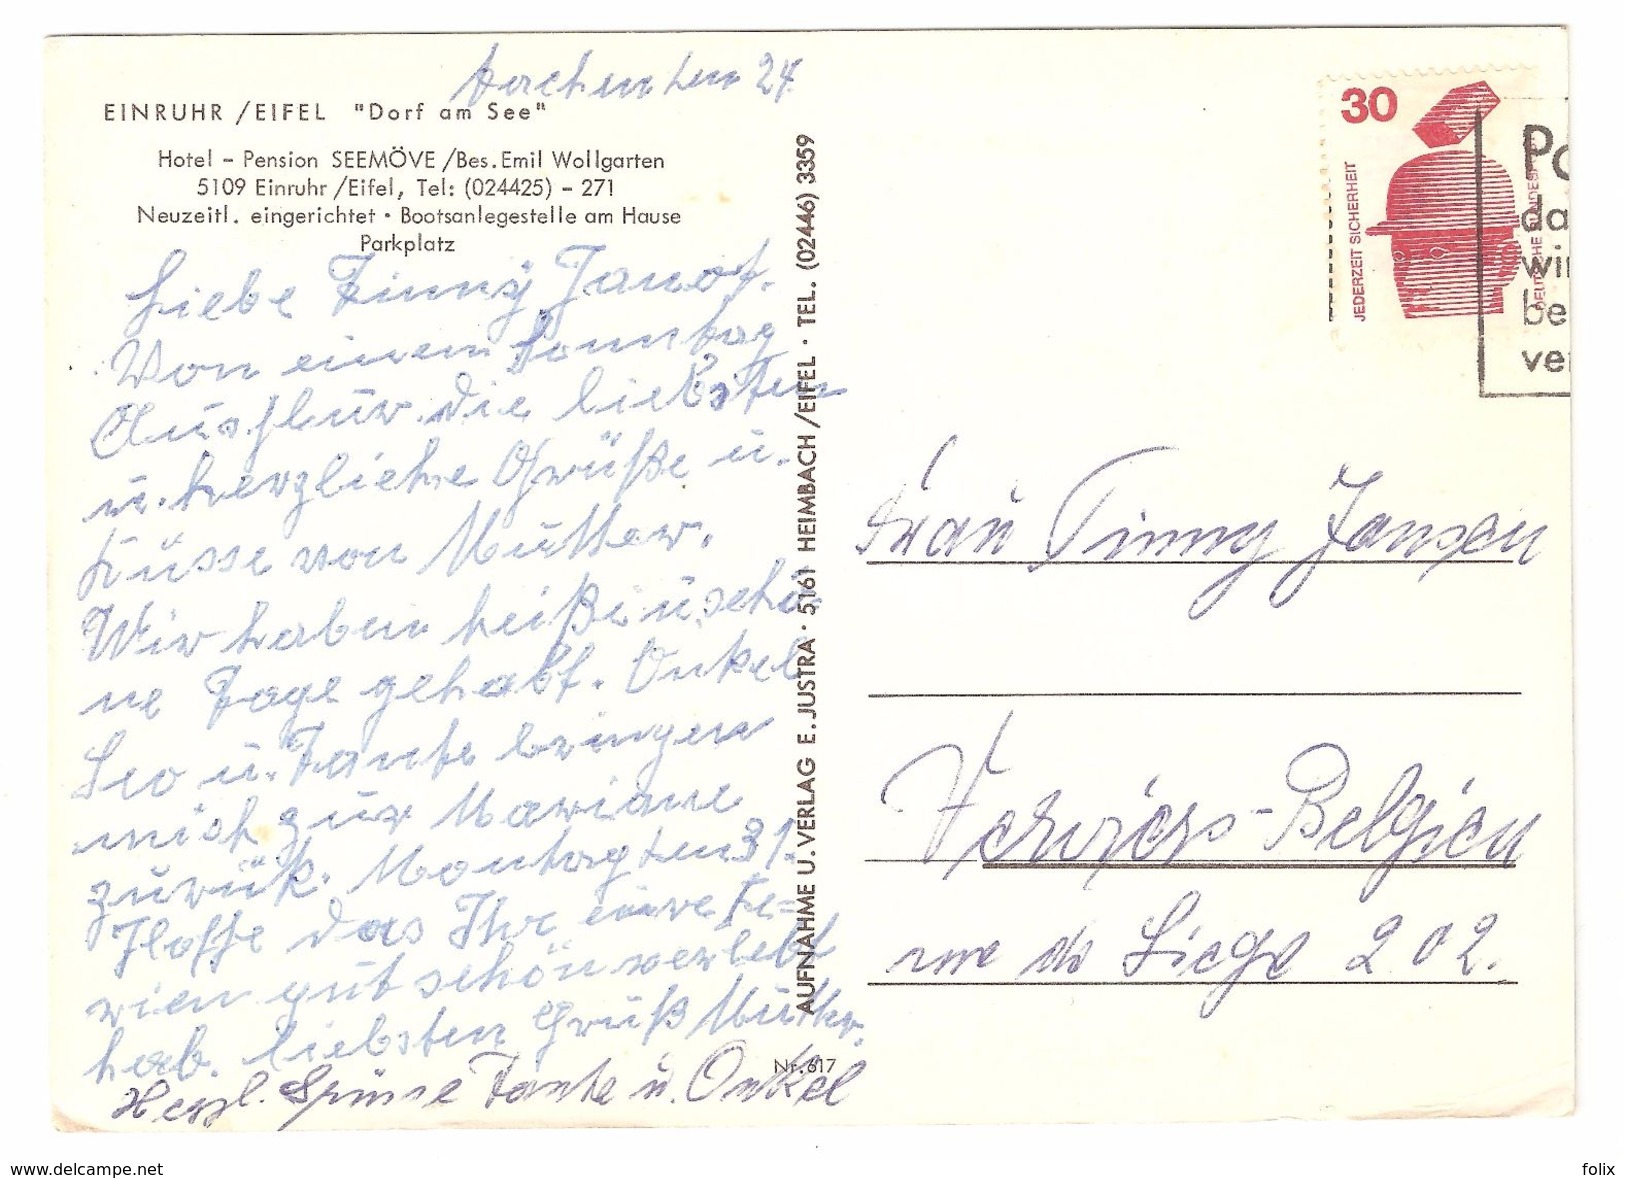 Aachen den 24
EINRUHR /EIFEL "Dorf am See"
Hotel - Pension SEEMÖVE /Bes. Emil Wollgarten
5109 Einruhr /Eifel, Tel: (024425) - 271
Neuzeitl. eingerichtet • Bootsanlegestelle am Hause
Parkplatz
Liebe Tinny
Von einem Sonntag
Ausflur die liebsten
u. herzliche Grüße u.
Küsse von Mutter.
Wir haben heiße u schö
ne Tage gehabt. Onkel
Leo u. Tante bringen
mich zur Mariane
zurük. Montag den 31.
Hoffe das Ihr eure Fe=
rien gut schön verlebt
hab. liebsten Gruß Mutter.
Herzl. Grüsse Tante u. Onkel
AUFNAHME U. VERLAG E. JUSTRA · 5161 HEIMBACH /EIFEL · TEL. (02446) 3359
Nr. 617
30
JEDERZEIT SICHERHEIT
DEUTSCHE BUNDESPOST
Po
da
wi
be
ve
Frau Tinny Jansen
Verviers - Belgien
rue de Liege 202.
www.delcampe.net
folix